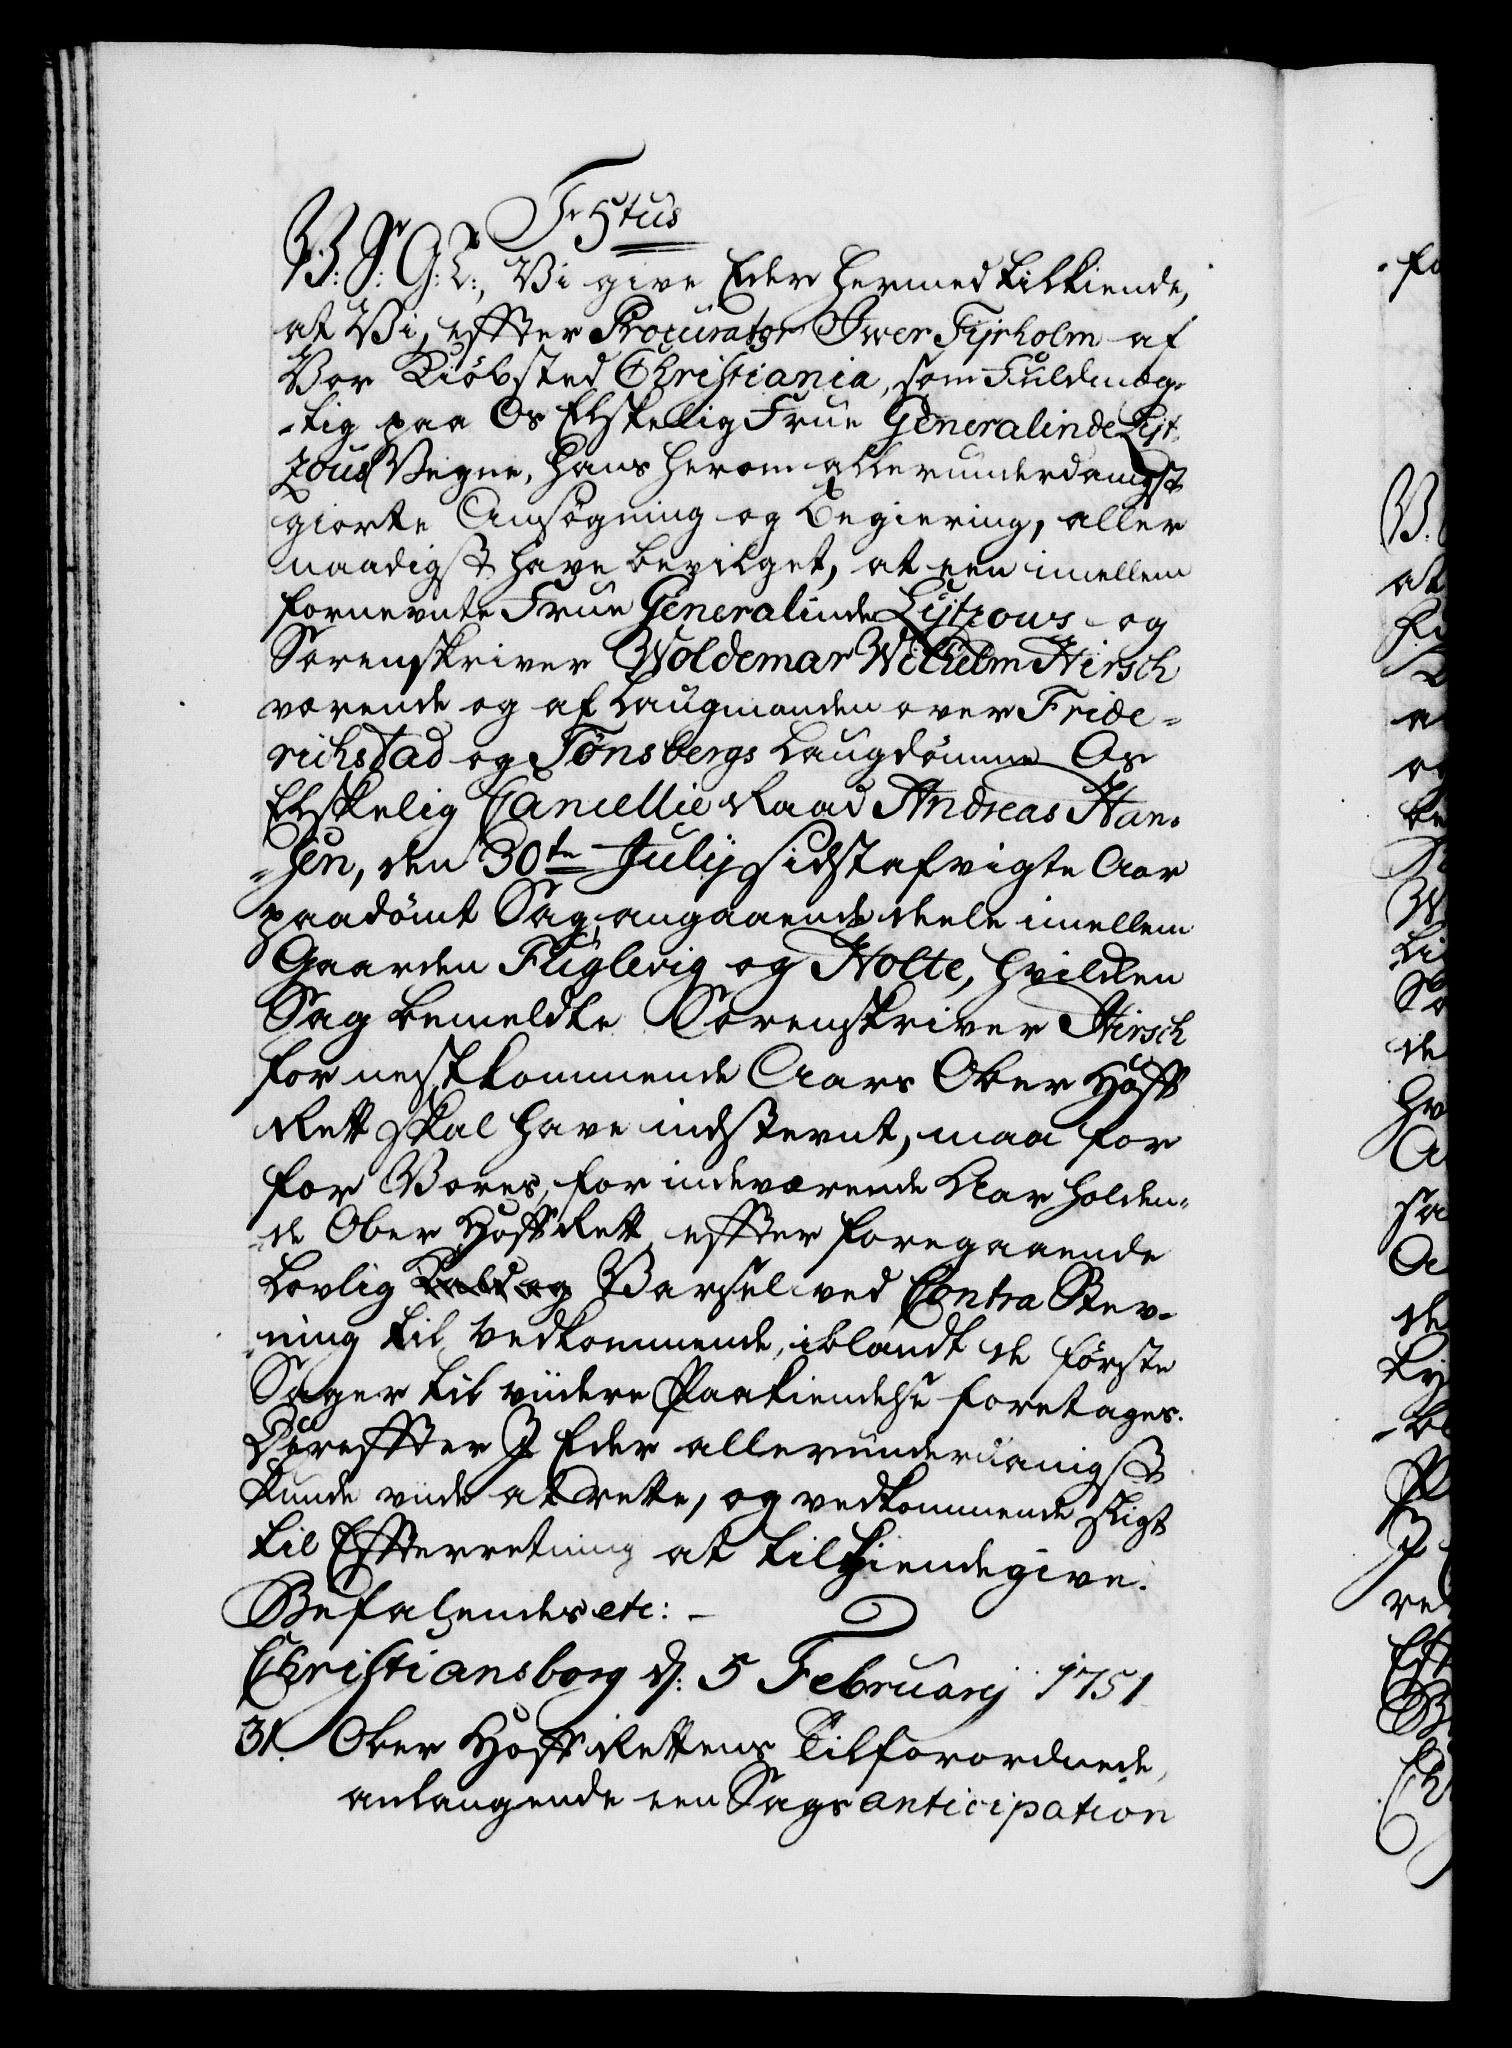 Fr 5tus
V: S: G: T:, Vi give Eder hermed tilkiende,
at Vi, effter Procurator Iwer Fyrholm af
Vor Kiöbsted Christiania, som Fuldmæg-
-tig paa Os Elskelig Frue Generalinde Lyt-
zous Vegne, hans herom allerunderdanigst
giorte Ansögning og Begiering, aller
naadigst have bevilget, at een imellem
fornevnte Frue Generalinde Lytzows og
Sorenskriver Woldemar Wilhelm Hirsch
værende og af Laugmanden over Fride-
richstad og Tönsbergs Laugdömme Os
Elskelig Cancellie Raad Andreas Han-
-sen, den 30te Julij sidstafvigte Aar
paadömt Sag, angaaende deele imellem
Gaarden Fuglevig og Holte, hvilken
Sag bemeldte Sorenskriver Hirsch
for nestkommende Aars Ober Hoff
Rett skal have indstevnt, maa for
for Vores, for indeværende Aar holden-
-de Ober Hoff Rett, effter foregaaende
Lovlig Kald og Varsel ved Contra Stev-
-ning til Vedkommende, iblandt de förste
Sager til viidere Paakiendelse foretages.
Dereffter I Eder allerunderdanigst
kunde viide at rette, og vedkommende sligt
til Effterretning at tilkiendegive.
Befalendes etc: -
Christiansborg d: 5 Februarij 1751
31. Ober Hoff Rettens Tilforordnede,
anlangende een Sags anticipation